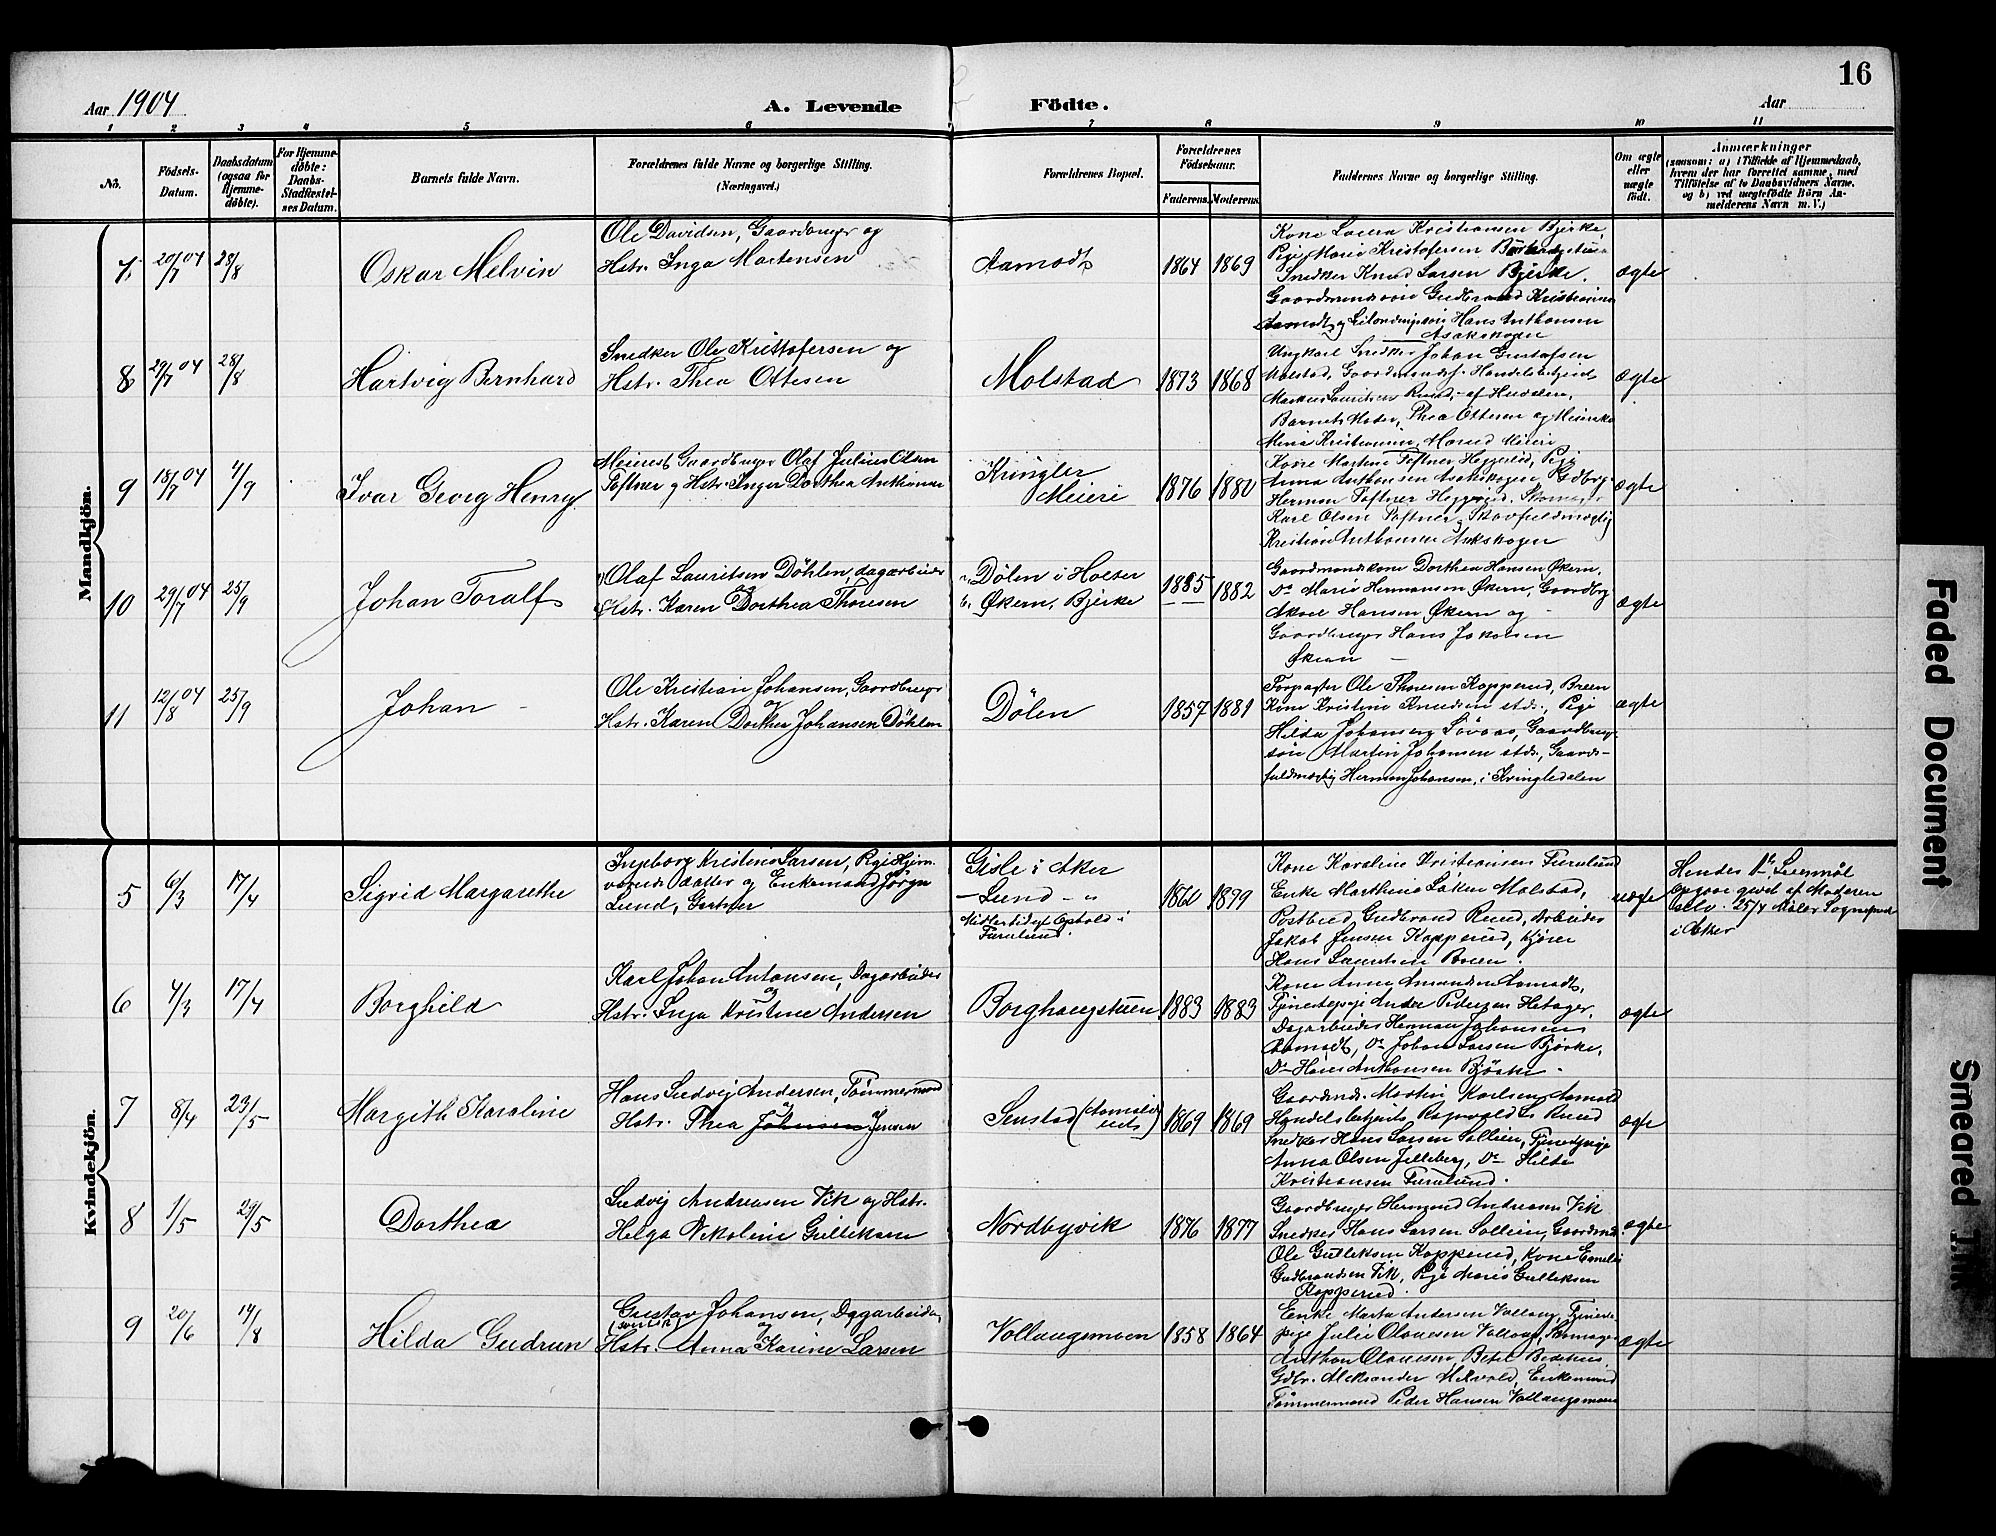 16
Aar 1904
A. Levende
Födte.
Aar
1 2 3 4 5 6 7 8 9 10 11
No.
Födsels-Datum.
Daabsdatum (ogsaa for Hjemme-döbte).
For Hjemme-döbte: Daabs-Stadfæstel-ses Datum.
Barnets fulde Navn.
Forældrenes fulde Navne og borgerlige Stilling.
(Næringsvei.)
Forældrenes Bopæl.
Forældrenes Födselsaar.
Faderens. Moderens.
Faddernes Navne og borgerlige Stilling.
Om ægte eller uægte födt.
Anmærkninger
(saasom: a) i Tilfælde af Hjemmedaab,
hvem der har forrettet samme, med
Tilföielse af to Daabsvidners Navne,
og b) ved uægtefödte Börn An-
melderens Navn m. V.)
Mandkjön.
7. 20/7 04 28/8 Oskar Melvin
Ole Davidsen, Gaardbruger og
Hstr. Inga Martensen
Aamodt 1864 1869
Kone Laura Kristiansen Bjerke,
Pige Marie Kristofersen
Snedker Knud Larsen Bjerke.
Gudbrand Kristiansen
Aamodt og Hans Anthonsen
Asakskogen
ægte
8 29/7 04 28/8 Hartvig Bernhard
Snedker Ole Kristofersen og
Hstr. Thea Ottesen
Molstad 1873 1868
Ungkarl Snedker Johan Gustafsen
Molstad,
Markus Lauritsen Ruud,
Barnets Moder, Thea Ottesen og Meierske
Kristiansen, Meieri
ægte
9 18/7 04 4/9 Ivar Georg Henry
Meierest Gaardbruger Olaf Julius Olsen
Toftner og Hstr. Inger Dorthea Anthonsen
Kringler
Meieri
1876 1880
Kone Martine Toftner Heggerud, Pige
Anna Anthonsen Asakskogen,
Herman Toftner Heggerud,
Karl Olsen Toftner, Skovfuldmægtig
Kristian Anthonsen Asakskogen
ægte
10 29/7 04 25/9 Johan Toralf
Olaf Lauritsen Döhlen, dagarbeider
og
Hstr. Karen Dorthea Thoresen
a. Dölen i Holter
b. Økern, Bjerke
1885 1882
Gaardmandskone Dorthea Hansen Økern,
Do Marie Hermansen Økern, Gaardbrg.
Hansen Økern og
Gaardbruger Hans Jakobsen
Økern
ægte
11 12/8 04 25/9 Johan
Ole Kristian Johansen, Gaardbruger
og
Hstr. Karen Dorthea Johansen Döhlen
Dölen 1857 1881
Forpagter Ole Thoresen Kopperud, Breen
Kone Kristine Knudsen stds., Pige
Hilda Johansen, Gaardbrug-
sön Martin Johansen stds., Gaards-
fuldmægtig Herman Johansen, i Kringledalen
ægte
Kvindekjön.
5 6/3 17/4 Sigrid Margarethe
Ingeborg Kristine Larsen, Pige Hjem-
værende datter og Enkemand Jörgen
Lund, Gartner
Gisle i Aker
- Lund - "
Midlertidigt Ophold i
Furulund.
1860 1879
Kone Karoline Kristiansen Furulund
Enke Marthine Molstad,
Postbud, Gudbrand Ruud, Arbeider
Jakob Jensen Kopperud, kjörer
Hans Lauritsen Breen.
uægte
Hendes
Opgave givet af Moderen
selv. 25/4
i Aker
6 4/3 17/4 Borghild
Karl Johan Antonsen, Dagarbeider
og
Hstr. Inga Kristine Andersen
Borghaugstuen 1883 1883
Kone Anne Amundsen Aamodt,
Tjenestepige Andr. Pedersen
Dagarbeider Herman Johansen
Aamodt, Do Johan Larsen Bjerke,
Do Hans Anthonsen Bjerke.
ægte
7 8/4 23/5 Margith Karoline
Hans Ludvig Andersen, Tömmermand
og
Hstr. Thea Johansen Jensen
Senstad
1869 1869
Gaardmd. Martin Karlsen Aamodt
Handelsbetjent Ragnvald Ruud
Snedker Hans Larsen Sollien, Tjenestpige
Anna Olsen Jelleberg, Do Hilda
Kristiansen Furulund.
ægte
8 1/5 29/5 Dorthea
Ludvig Andreasen Vik og Hstr.
Helga Nikoline Gulliksen
Nordbyvik 1876 1877
Gaardbruger Hermand Andreasen Vik
Snedker Hans Larsen Sollien, Gaardmd.
Ole Gulliksen Kopperud, Kone Emelie
Gudbrandsen Vik, Pige Maria Gulliksen
Kopperud.
ægte
9 20/6 14/8 Hilda Gudrun
Gustav Johansen, Dagarbeider,
(svensk) og
Hstr. Anna Karine Larsen
Vollaugsmoen 1858 1864
Enke Marta Andersen Vollaug, Tjeneste-
pige Julie Olausen Vollaug,
Anthon Olaussen,
Gdbr. Aleksander Melvold, Enkemand
Tömmermand Peder Hansen Vollaugsmoen
ægte
Faded Document
Smeared Ink